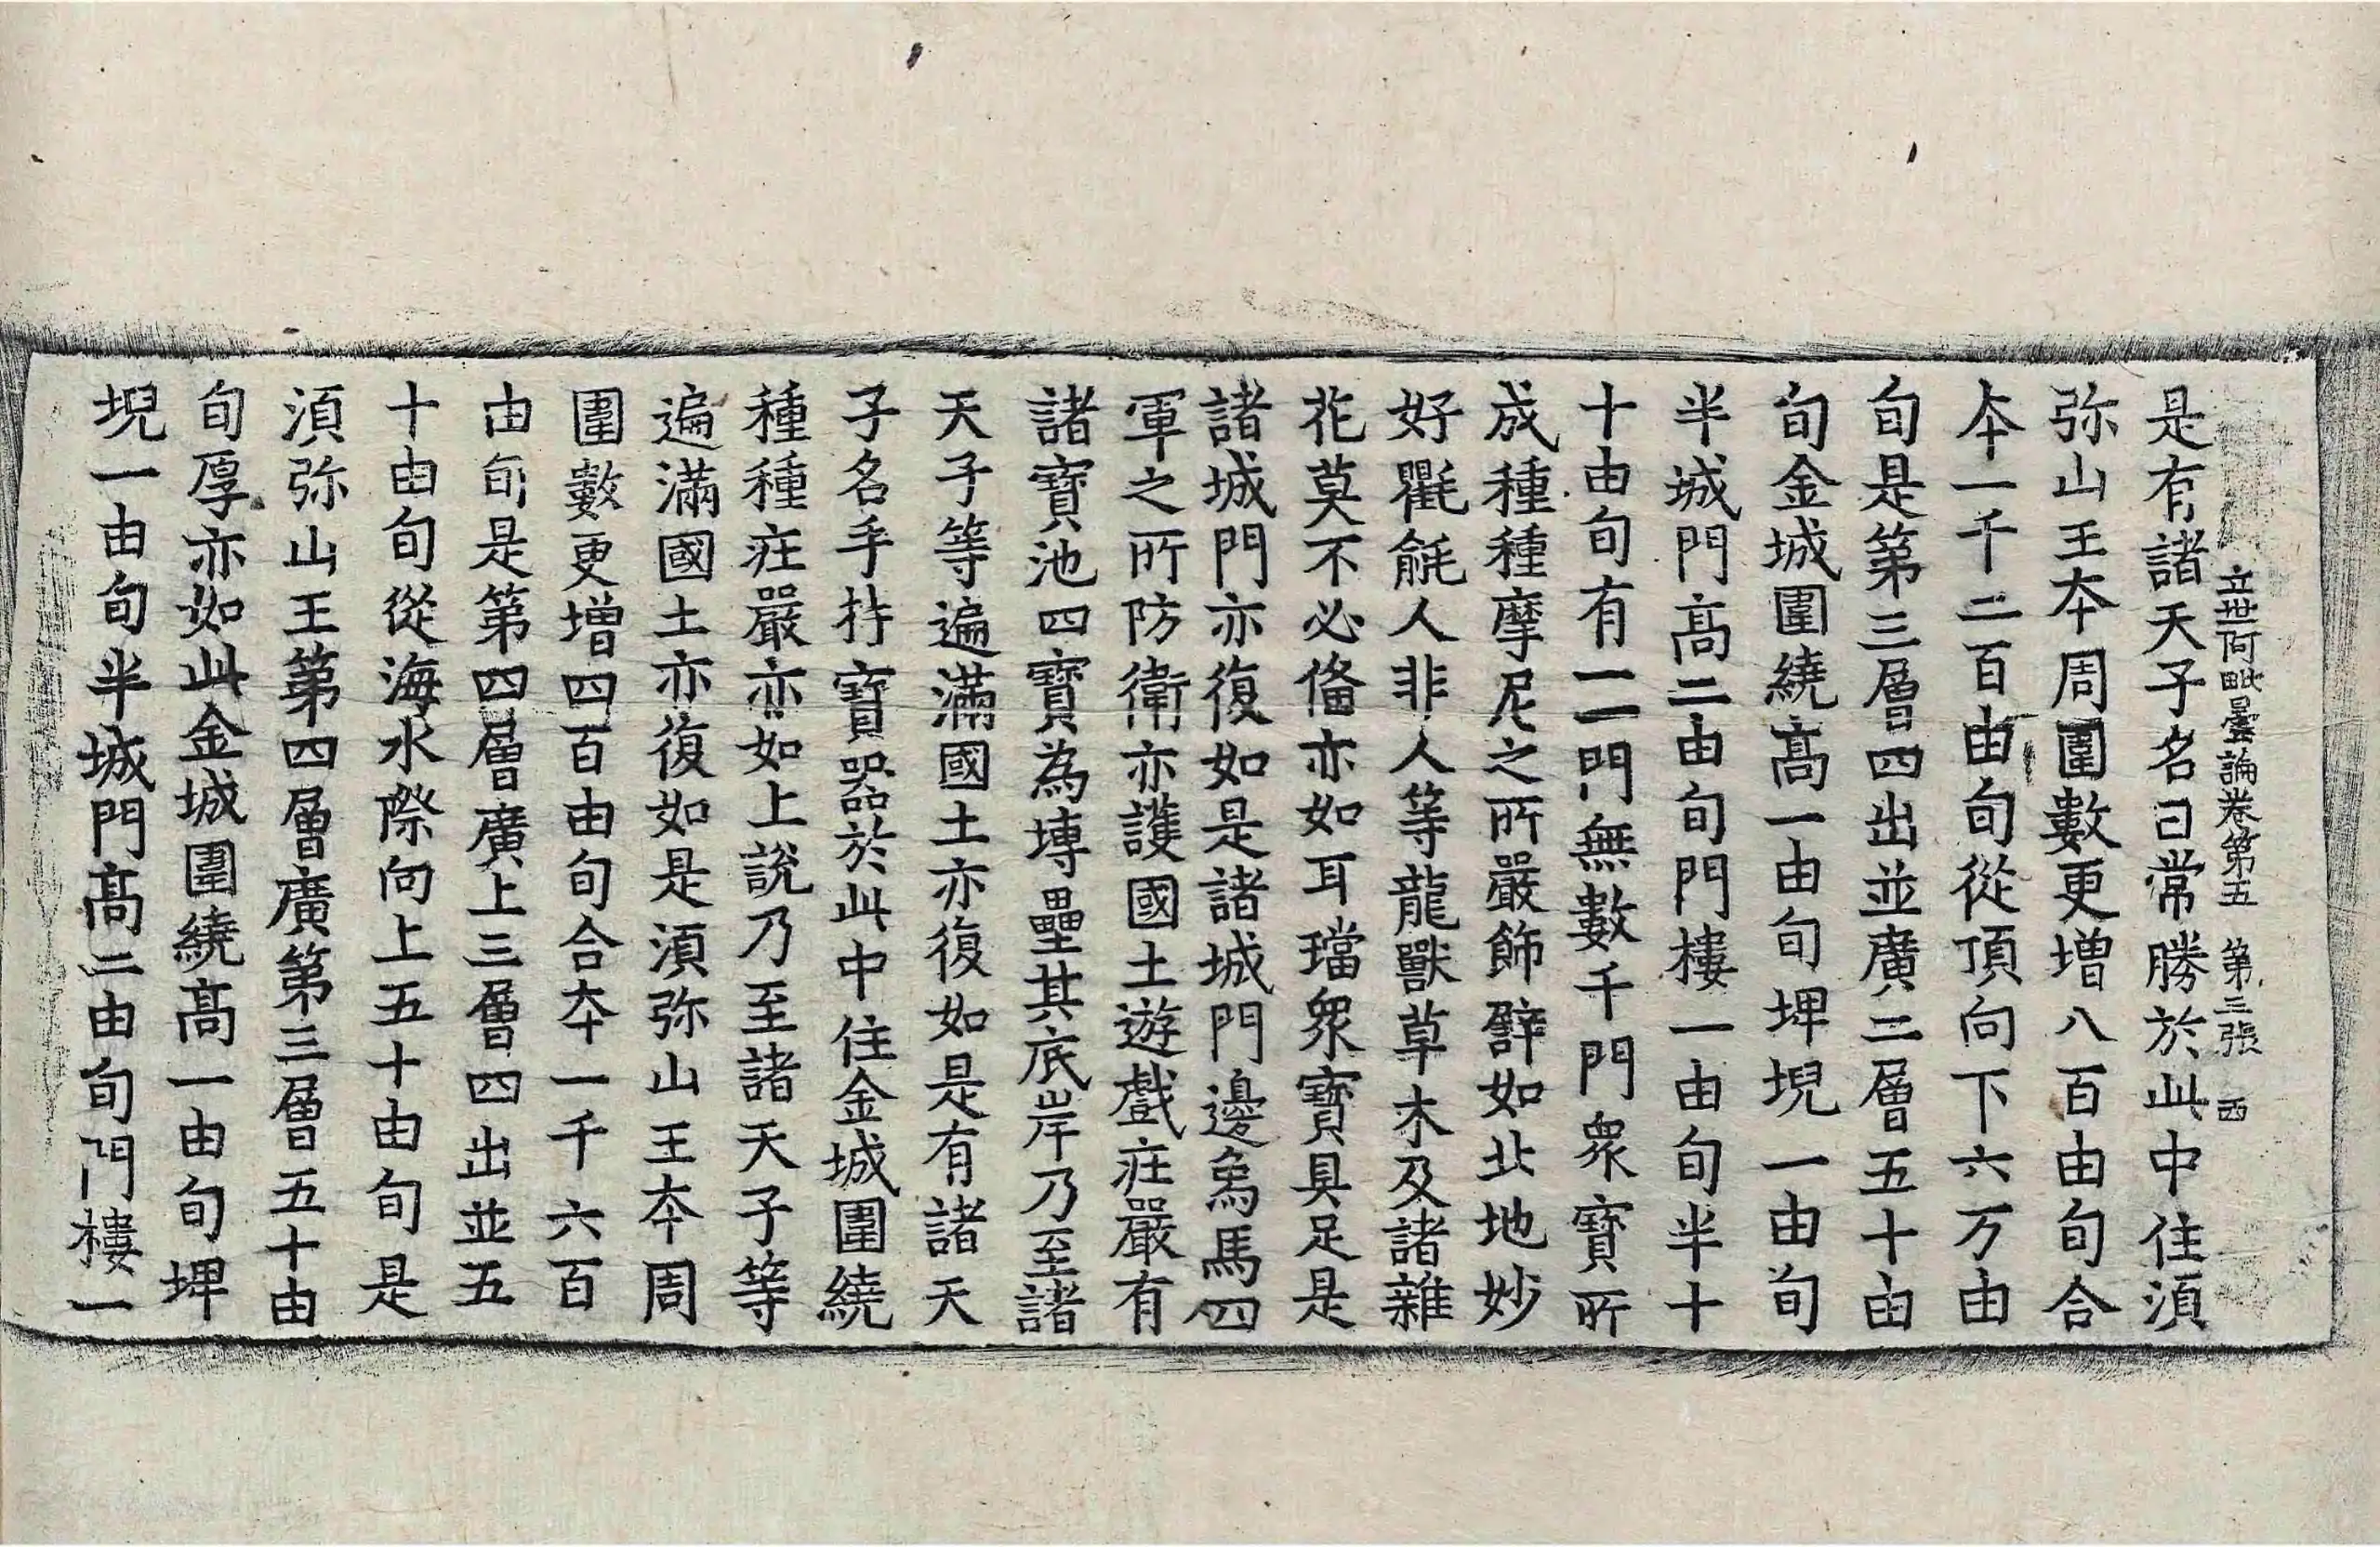 立世阿毗曇論卷第五　第三張　西
是有諸天子名曰常勝於此中住湏
弥山王夲周圍數更增八百由旬合
夲一千二百由旬從頂向下六万由
旬是第三層四出並廣二層五十由
旬金城圍繞髙一由旬埤堄一由旬
半城門髙二由旬門樓一由旬半十
十由旬有一一門無數千門衆寶所
成種種摩尼之所嚴飾譬如北地妙
好氍毹人非人等龍獸草木及諸雜
花莫不必俻亦如耳璫衆寶具足是
諸城門亦復如是諸城門邊象馬四
軍之所防衛亦護國土遊戲莊嚴有
諸寶池四寶為塼壘其底岸乃至諸
天子等遍滿國土亦復如是有諸天
子名手持寶器於此中住金城圍繞
種種莊嚴亦如上說乃至諸天子等
遍滿國土亦復如是湏弥山王夲周
圍數更增四百由旬合夲一千六百
由旬是第四層廣上三層四出並五
十由旬從海水際向上五十由旬是
湏弥山王第四層廣第三層五十由
旬厚亦如此金城圍繞髙一由旬埤
堄一由旬半城門髙二由旬門樓一